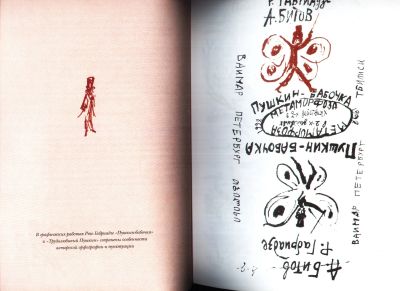 В графических работах Резо Габриадзе «Пушкин-бабочка»
и «Трудолюбивый Пушкин» сохранены особенности
авторской орфографии и пунктуации
Р. ГАБРИАДЗЕ
А. БИТОВ
ВАЙМАР ПЕТЕРБУРГ
ПУШКИН-БАБОЧКА
МЕТАМОРФОЗА
МЕТАМОРФОЗА
ПУШКИН-БАБОЧКА
ВАЙМАР ПЕТЕРБУРГ ТБИЛИСИ
Р. Габриадзе
А. Битов